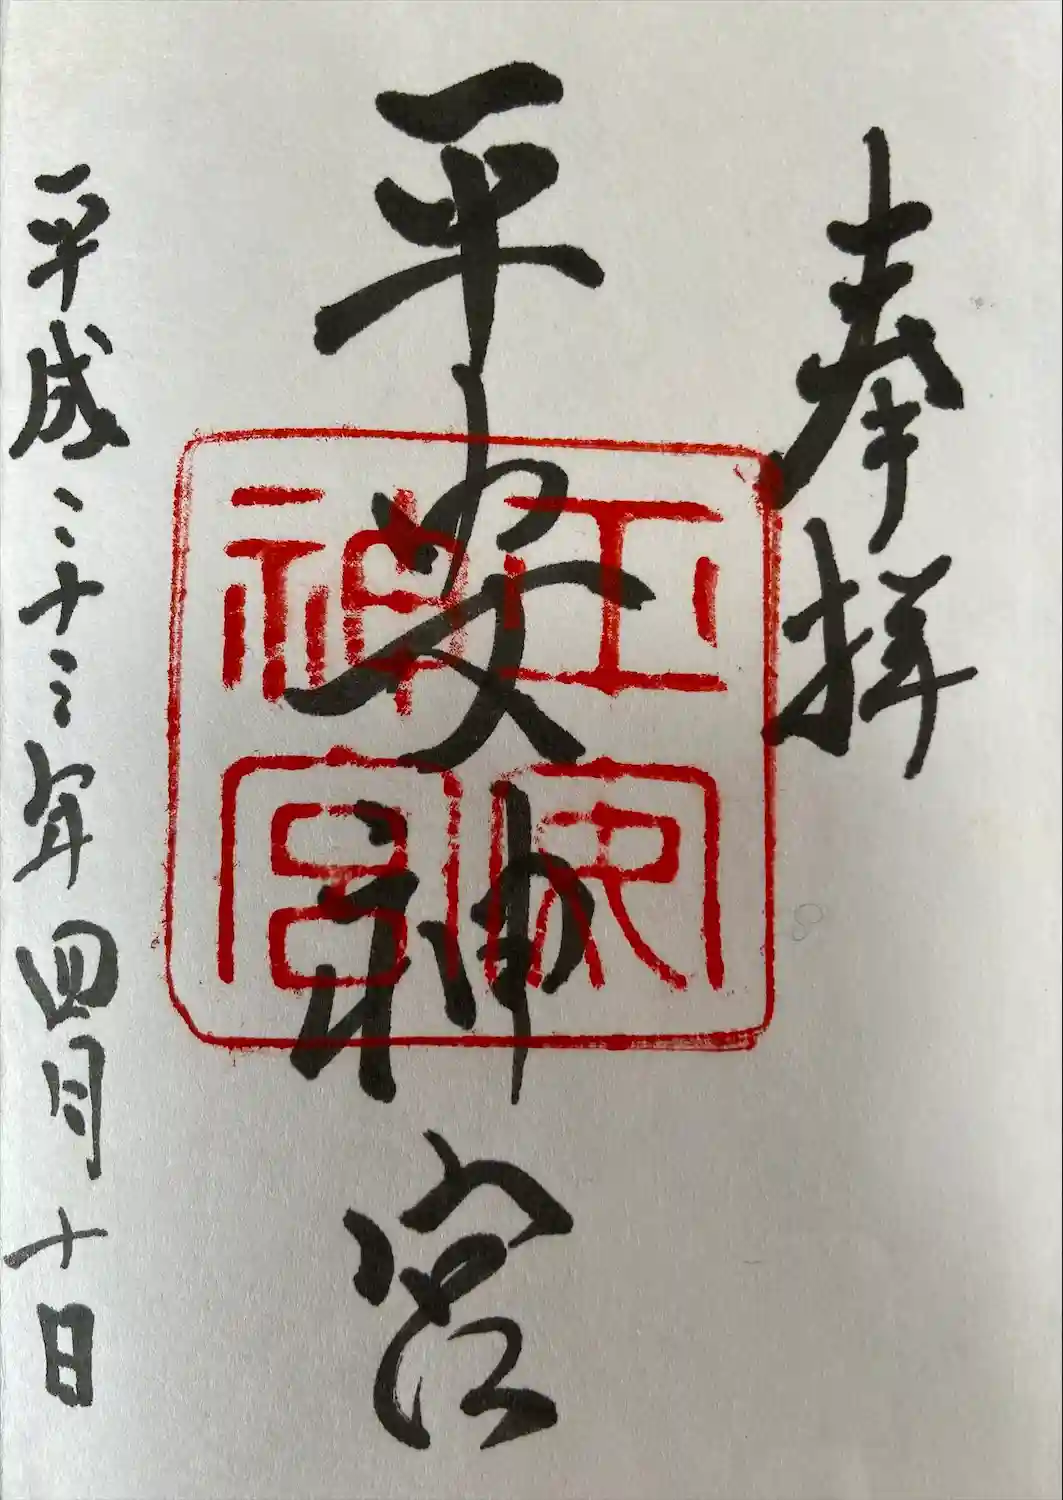 奉拝
平安神宮
平成二十三年四月十日
平安神宮